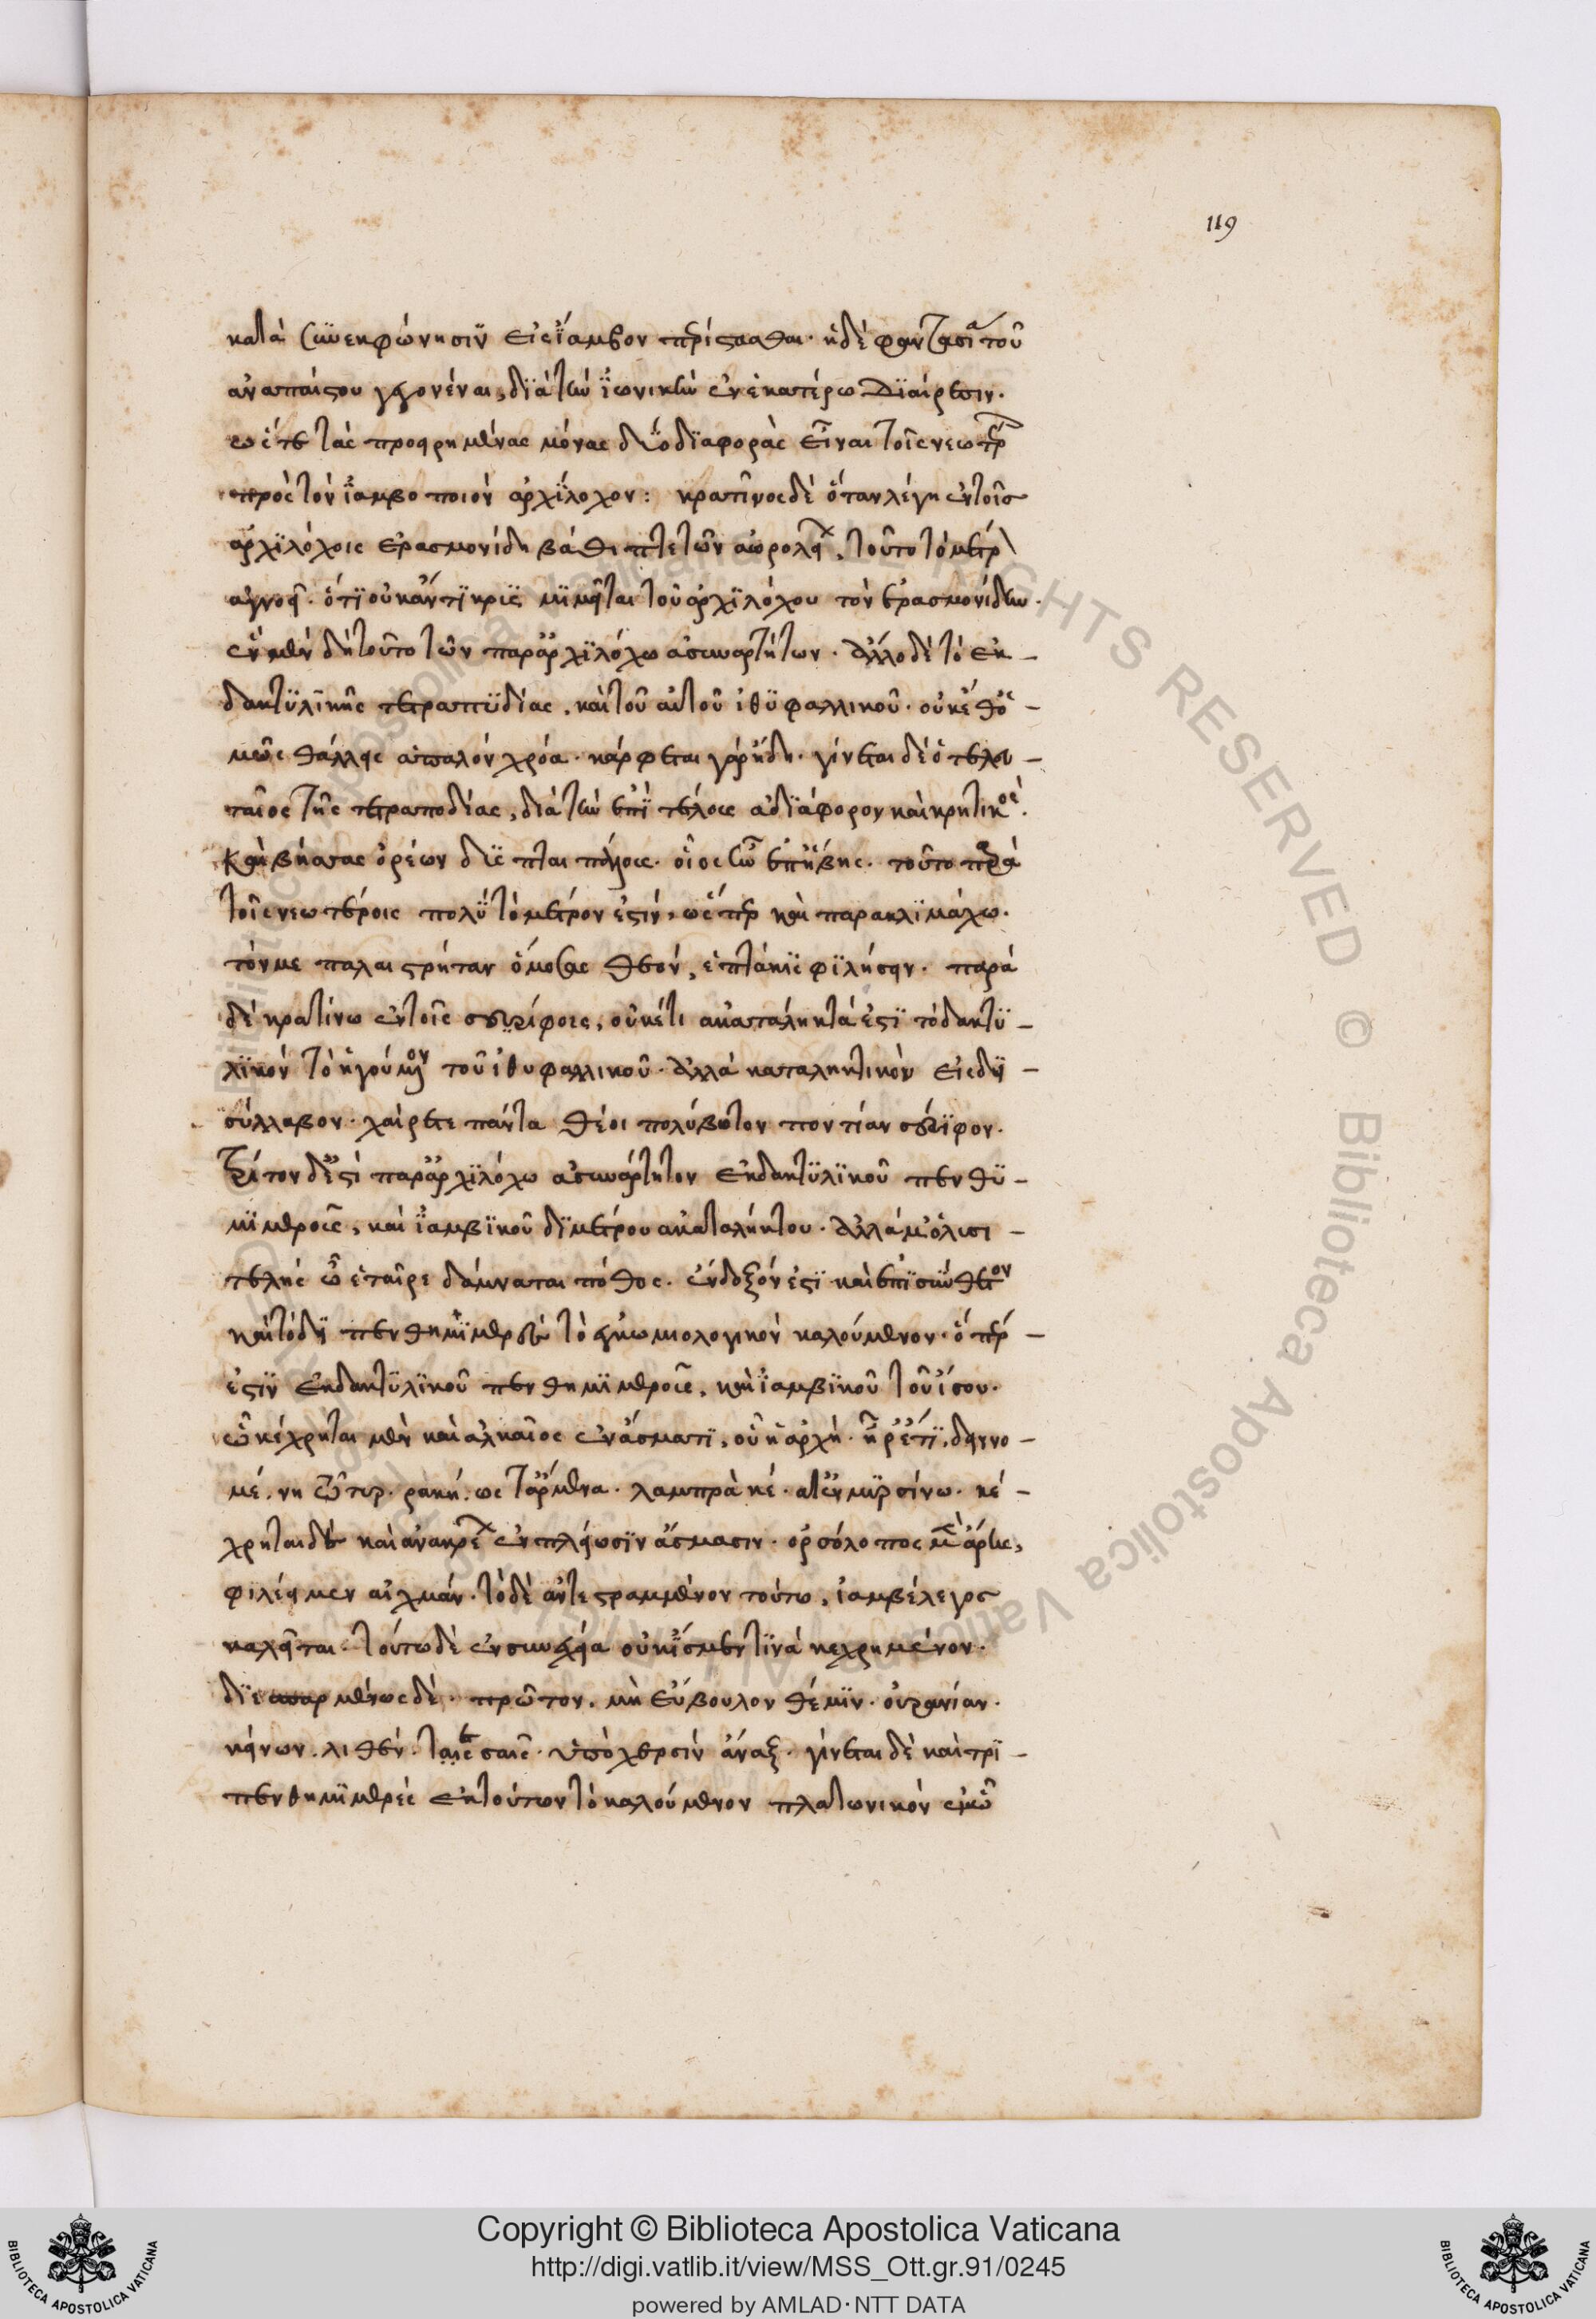 119
κατὰ συνεκφώνησιν εἰς ἴαμβον περιίστασθαι· ἡ δὲ φαντασία τοῦ
ἀναπαίστου γεγονέναι, διὰ τὴν ἰωνικὴν ἐν ἑκατέρω διαίρεσιν·
ὥστε τὰς προειρημένας μόνας δύο διαφορὰς εἶναι τοῖς νεωτέρ
πρὸς τὸν ἰαμβοποιὸν ἀρχίλοχον: κρατῖνος δὲ ὅταν λέγη ἐν τοῖς
ἀρχιλόχοις ἐρασμονίδη βάθιππε τῶν ἀωρολεί, τοῦτο τὸ μέτρ
ἀγνοεῖ· ὅτι οὐκ ἄντικρις μιμεῖται τοῦ ἀρχιλόχου τὸν ἐρασμονίδην·
ἓν μὲν δὴ τοῦτο τῶν παρ' ἀρχιλόχω ἀσυναρτήτων· ἄλλο δὲ τὸ ἐκ –
δακτυλικῆς τετραπυδίας, καὶ τοῦ αὐτοῦ ἰθυφαλλικοῦ· οὐκέθ' ὁ –
μῶς θάλλεις ἁπαλὸν χρόα· κάρφεται γὰρ ἤδη· γίνεται δὲ ὁ τελευ –
ταῖος τῆς τετραποδίας, διὰ τὴν ἐπὶ τέλους ἀδιάφορον καὶ κρητικός·
καὶ βήσσας ὀρέων δυσπαιπάλους· οἷος ἦν ἐπ' ἥβης· τοῦτο παρὰ
τοῖς νεωτέροις πολὺ τὸ μέτρον ἐστίν, ὥσπερ καὶ παρὰ κλιμάχω·
τόν με παλαιστρήταν ὀμόσας θεὸν, ἑπτάκις φιλήσειν· παρὰ
δὲ κρατίνω ἐν τοῖς σερίφοις, οὐκέτι ἀκατάληκτά ἐστι τὸ δακτυ –
λικὸν τὸ ἡγούμενον τοῦ ἰθυφαλλικοῦ· ἀλλὰ καταληκτικὸν εἰς δι –
σύλλαβον· χαίρετε πάντα θέοι πολύβωτον ποντίαν σέριφον·
τρίτον δ' ἐστὶ παρ' ἀρχιλόχω ἀσυνάρτητον ἐκ δακτυλικοῦ πενθυ –
μιμεροῖς, καὶ ἰαμβικοῦ διμέτρου ἀκαταλήκτου· ἀλλά μ' ὁ λυσι –
τελὴς ὦ ἑταῖρε δάμναται πόθος· ἔνδοξόν ἐστι καὶ ἐπισύνθετον
καὶ τὸ δι πενθημιμερὲς τὸ ἐγκωμιολογικὸν καλούμενον· ὅπερ –
ἐστὶν ἐκ δακτυλικοῦ πενθημιμεροῖς, καὶ ἰαμβικοῦ τοῦ ἴσου·
ᾧ κέχρηται μὲν καὶ ἀλκαῖος ἐν ἄσματι, οὗ ἡ ἀρχή· ἦ ῥ' ἔτι, δειννο –
χρηται δὲ καὶ ἀνακρέ ἐν πλείωσιν ἄσμασιν· ὀρσόλοπος μὲν ἄρης,
φιλέει μεν αἰχμάν· τὸ δὲ ἀντεστραμμένον τούτω, ἰαμβέλεγος
καλεῖται· τούτω δὲ ἐν συνεχεία οὐκ ἴσμεν τινὰ κεχρημένον·
διεσπαρμένως δὲ· πρῶτον. μὴ εὔβουλον θέμιν· οὐρανίαν·
κείνων. λιθεν. ταῖς σαῖς· ὑπὸ χερσὶν ἄναξ· γίνεται δὲ καὶ τρι –
πενθημιμερὲς ἐκ τούτων τὸ καλούμενον πλατωνικὸν ἐν ᾧ
Copyright © Biblioteca Apostolica Vaticana
http://digi.vatlib.it/view/MSS_Ott.gr.91/0245
powered by AMLAD·NTT DATA